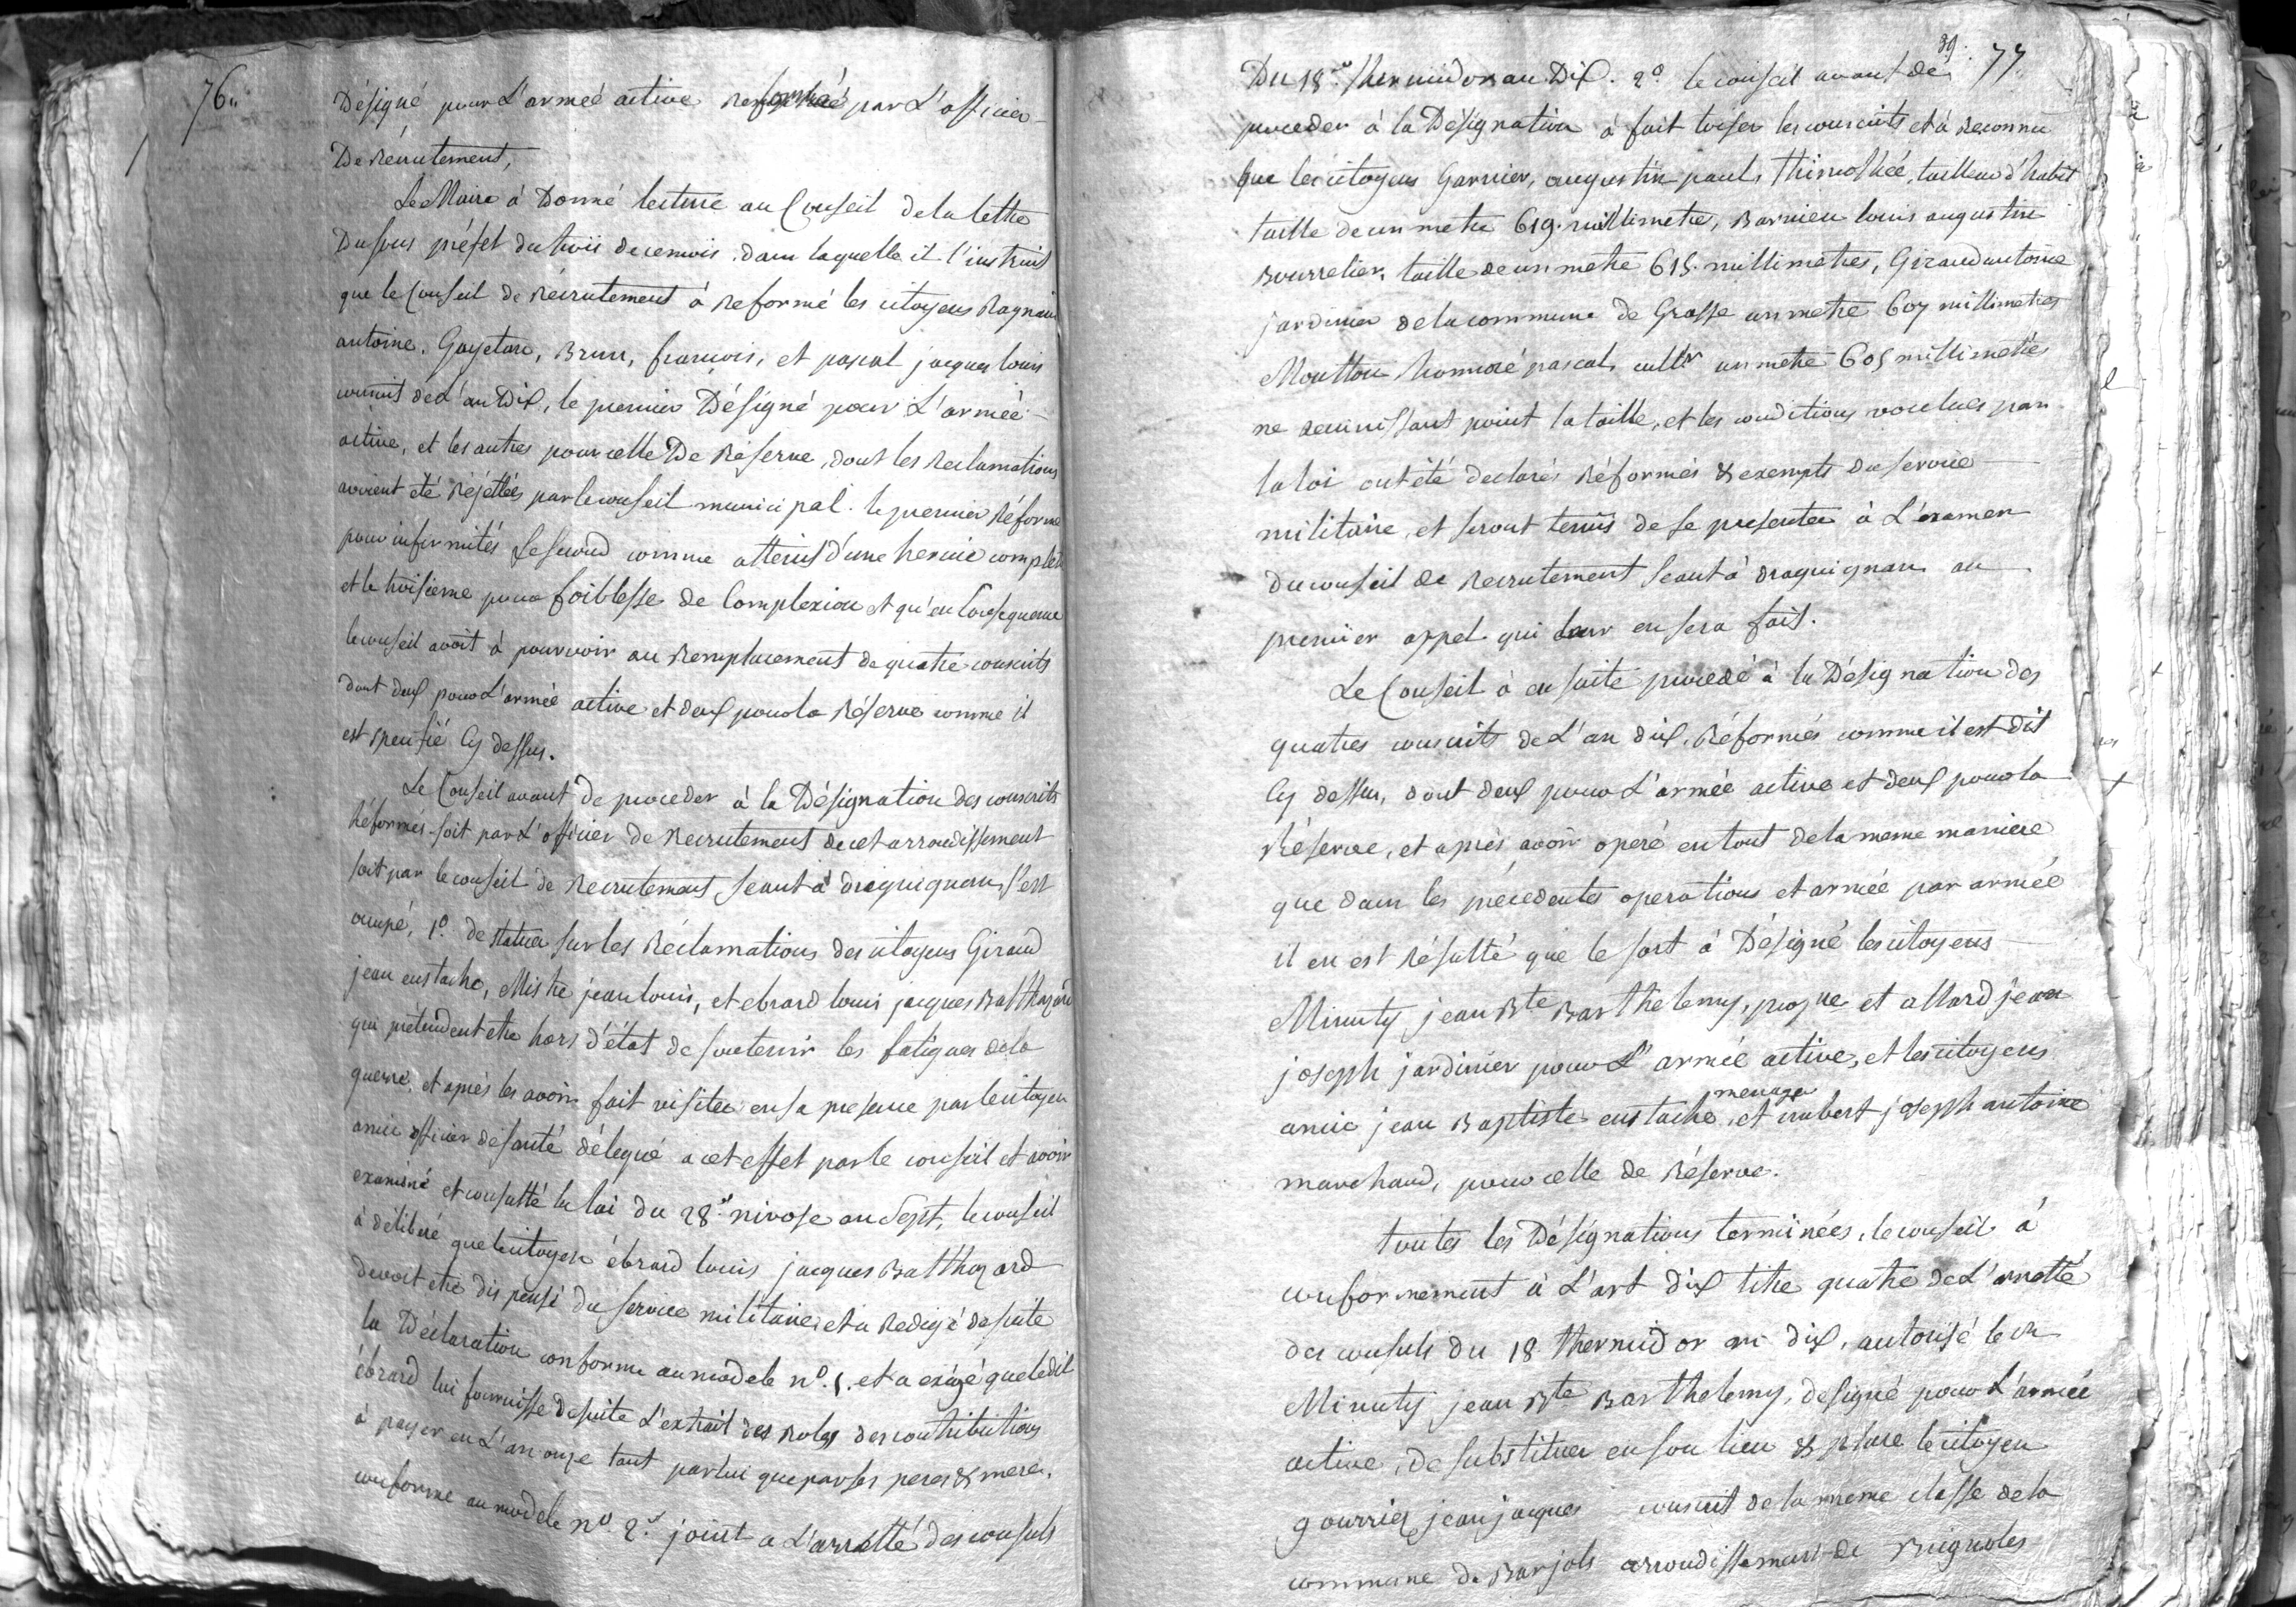 76.
Désigné pour L'armeé active par L'officier
De Récrutement,
Le Maire à Donné lecture au Conseil de la lettre
Du sous préfet du trois de ce mois. dans laquelle il l'instruit
que le Conseil de Récrutement à Reformé les citoyens Raynaud
antoine. Gayetan, Brun, francois, et pascal jacques louis
conscrits de L'an Dix, le premier Désigné pour L'armeé
active, et les autres pour celle De Réserve, dont les Reclamations
avoient été Réjettées par le conseil municipal. le premier Réformé
pour infirmités le second comme atteint d'une hernie complete
et le troisieme pour foiblesse de Complexion et qu'en Consequence
le conseil avoit à pourvoir au Remplacement de quatre conscrits
dont deux pour L'armée active et deux pour la Réserve comme il
est specifié Cy dessus.
Le Conseil avant de proceder à la Désignation des conscrits
Réformés soit par L'officier de Recrutement de cet arrondissement
soit par le conseil de Recrutement seant à draguignan, s'est
occupé, 1º. de statuer sur les Réclamations des citoyens Giraud
jean eustache, Mistre jean louis, et ebrard louis jacques Balthazard
qui prétendent etre hors d'état de soutenir les fatigues de la
guerre, et après les avoir fait visiter en sa presence par le citoyen
amic officier de santé délegué a cet effet par le conseil et avoir
examiné et consulté la loi du 28.e nivose an Sept, le conseil
à déliberé que le citoyen ébrard louis jacques Balthazard
devoit etre dispensé du service militaire et a Redigé de suite
la Déclaration conforme au modele nº. 1. et a exigé que ledit
ébrard lui fournisse de suite L'extrait des Roles des contributions
à payer en L'an onze tant par lui que par ses peres & mere,
conforme au modele nº 2.e joint a L'arretté des consuls
39. 77
Du 18.e thermidor an Dix. 2º. le conseil avant de
proceder à la Désignation à fait toiser les conscrits et à Reconnu
que les citoyens Garnier, augustin paul, thimothée, tailleur d'habit
taille de un metre 619. millimetre, Barnieu louis augustin
Bourrelier, taille de un metre 615. millimetres, Giraud antoine
jardinier de la commune de Grasse un metre 607 millimetres
Moutton honnoré pascal, cultr un metre 605 millimetres
ne reunissant point la taille, et les conditions voulues par
la loi ont été declarés Réformés & exempts du service
militaire, et seront tenus de se presenter à L'examen
du conseil de Recrutement seant à draguignan au
premier appel qui leur en sera fait.
Le Conseil à ensuite procedé à la Désignation des
quatres conscrits de L'an dix, Réformés comme il est dit
Cy dessus, dont deux pour L'armée active et deux pour la
Réserve, et après avoir operé en tout de la meme maniere
que dans les précedentes operations et armée par armée
il en est Résulté que le sort à Désigné les citoyens
Minuty jean Bte Barthelemy, et allard jean
joseph jardinier pour L'armée active, et les citoyens
menager
amic jean Baptiste eustache, et joseph antoine
marchand, pour celle de Réserve.
toutes les Désignations terminées, le conseil à
conformement à L'art dix titre quatre de L'arretté
des consuls du 18 thermidor an dix, autorisé le cn
Minuty jean Bte Barthelemy, designé pour L'armée
active, de substituer en son lieu & place le citoyen
gourrier jean jacques conscrit de la meme classe de la
commune de Barjols arrondissement de Brignoles